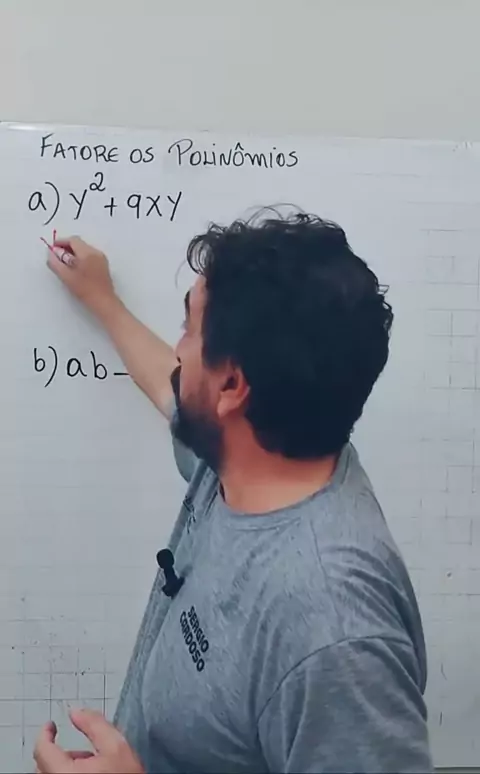 FATORE OS POLINÔMIOS
a) y² + 9xy
b) ab -
SERGIO
CARDOSO